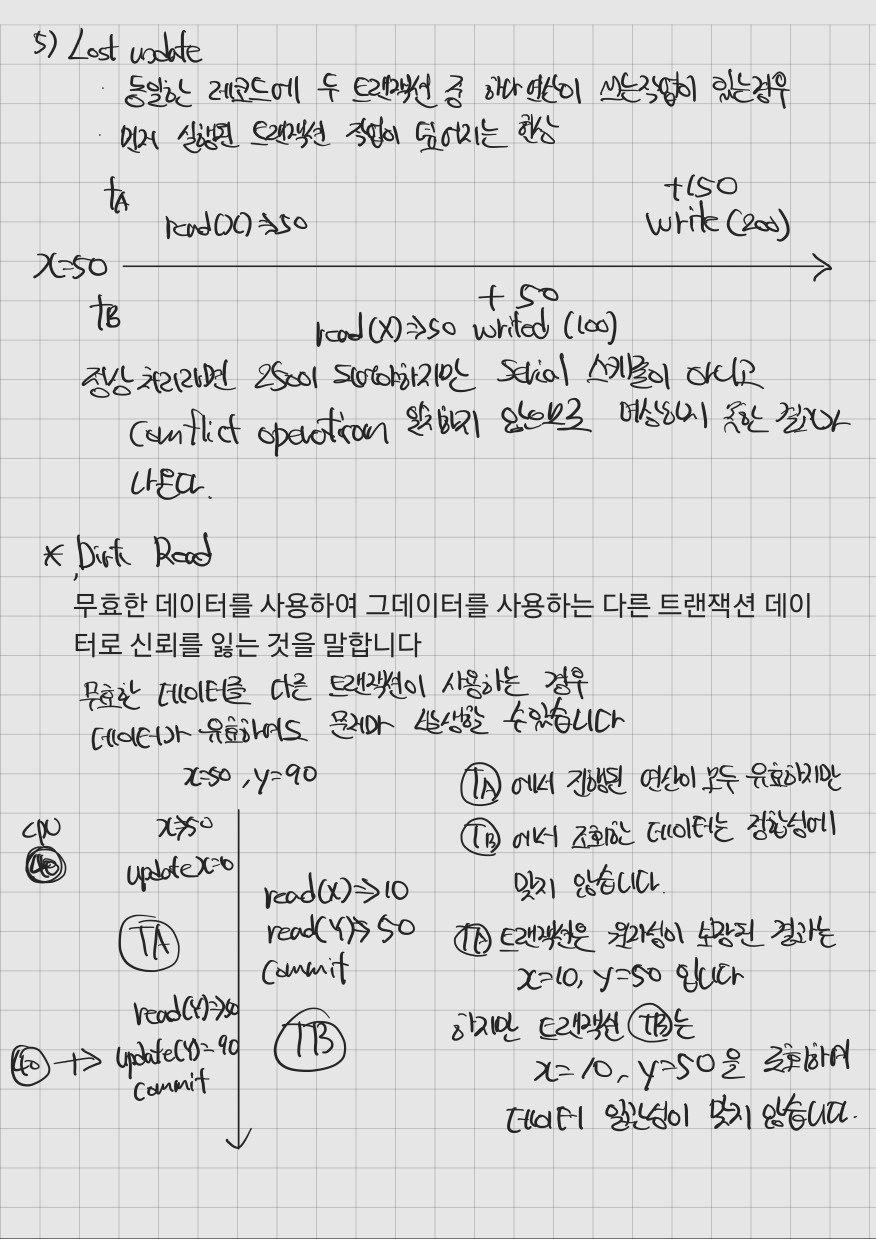 5) Lost update
· 동일한 레코드에 두 트랜잭션 중 하나 연산이 쓰는작업이 있는경우
· 먼저 실행된 트랜잭션 작업이 덮어지는 현상
tA
+150
read(X)⇒50
write(200)
x=50
tB
+50
read(X)⇒50 writed (100)
정상처리라면 250이 되어야하지만 Serial 스케줄이 아니고
Conflict operation 일치하지 않으므로 예상하지 못한 결과가
나온다.
* Dirti Read
무효한 데이터를 사용하여 그데이터를 사용하는 다른 트랜잭션 데이
터로 신뢰를 잃는 것을 말합니다
무효한 데이터를 다른 트랜잭션이 사용하는 경우
데이터가 유효하여도 문제가 발생할 수있습니다
x=50, y=90
cpu
x⇒50
40
update x=10
read(X)⇒10
read(Y)⇒50
commit
TA
TB
read(Y)⇒50
40 → update(Y)=90
commit
TA 에서 진행된 연산이 모두 유효하지만
TB 에서 조회한 데이터는 정합성에
맞지 않습니다.
TA 트랜잭션은 원자성이 보장된 결과는
x=10, y=50 입니다
하지만 트랜잭션 TB는
x=10, y=50을 조회하여
데이터 일관성이 맞지 않습니다.